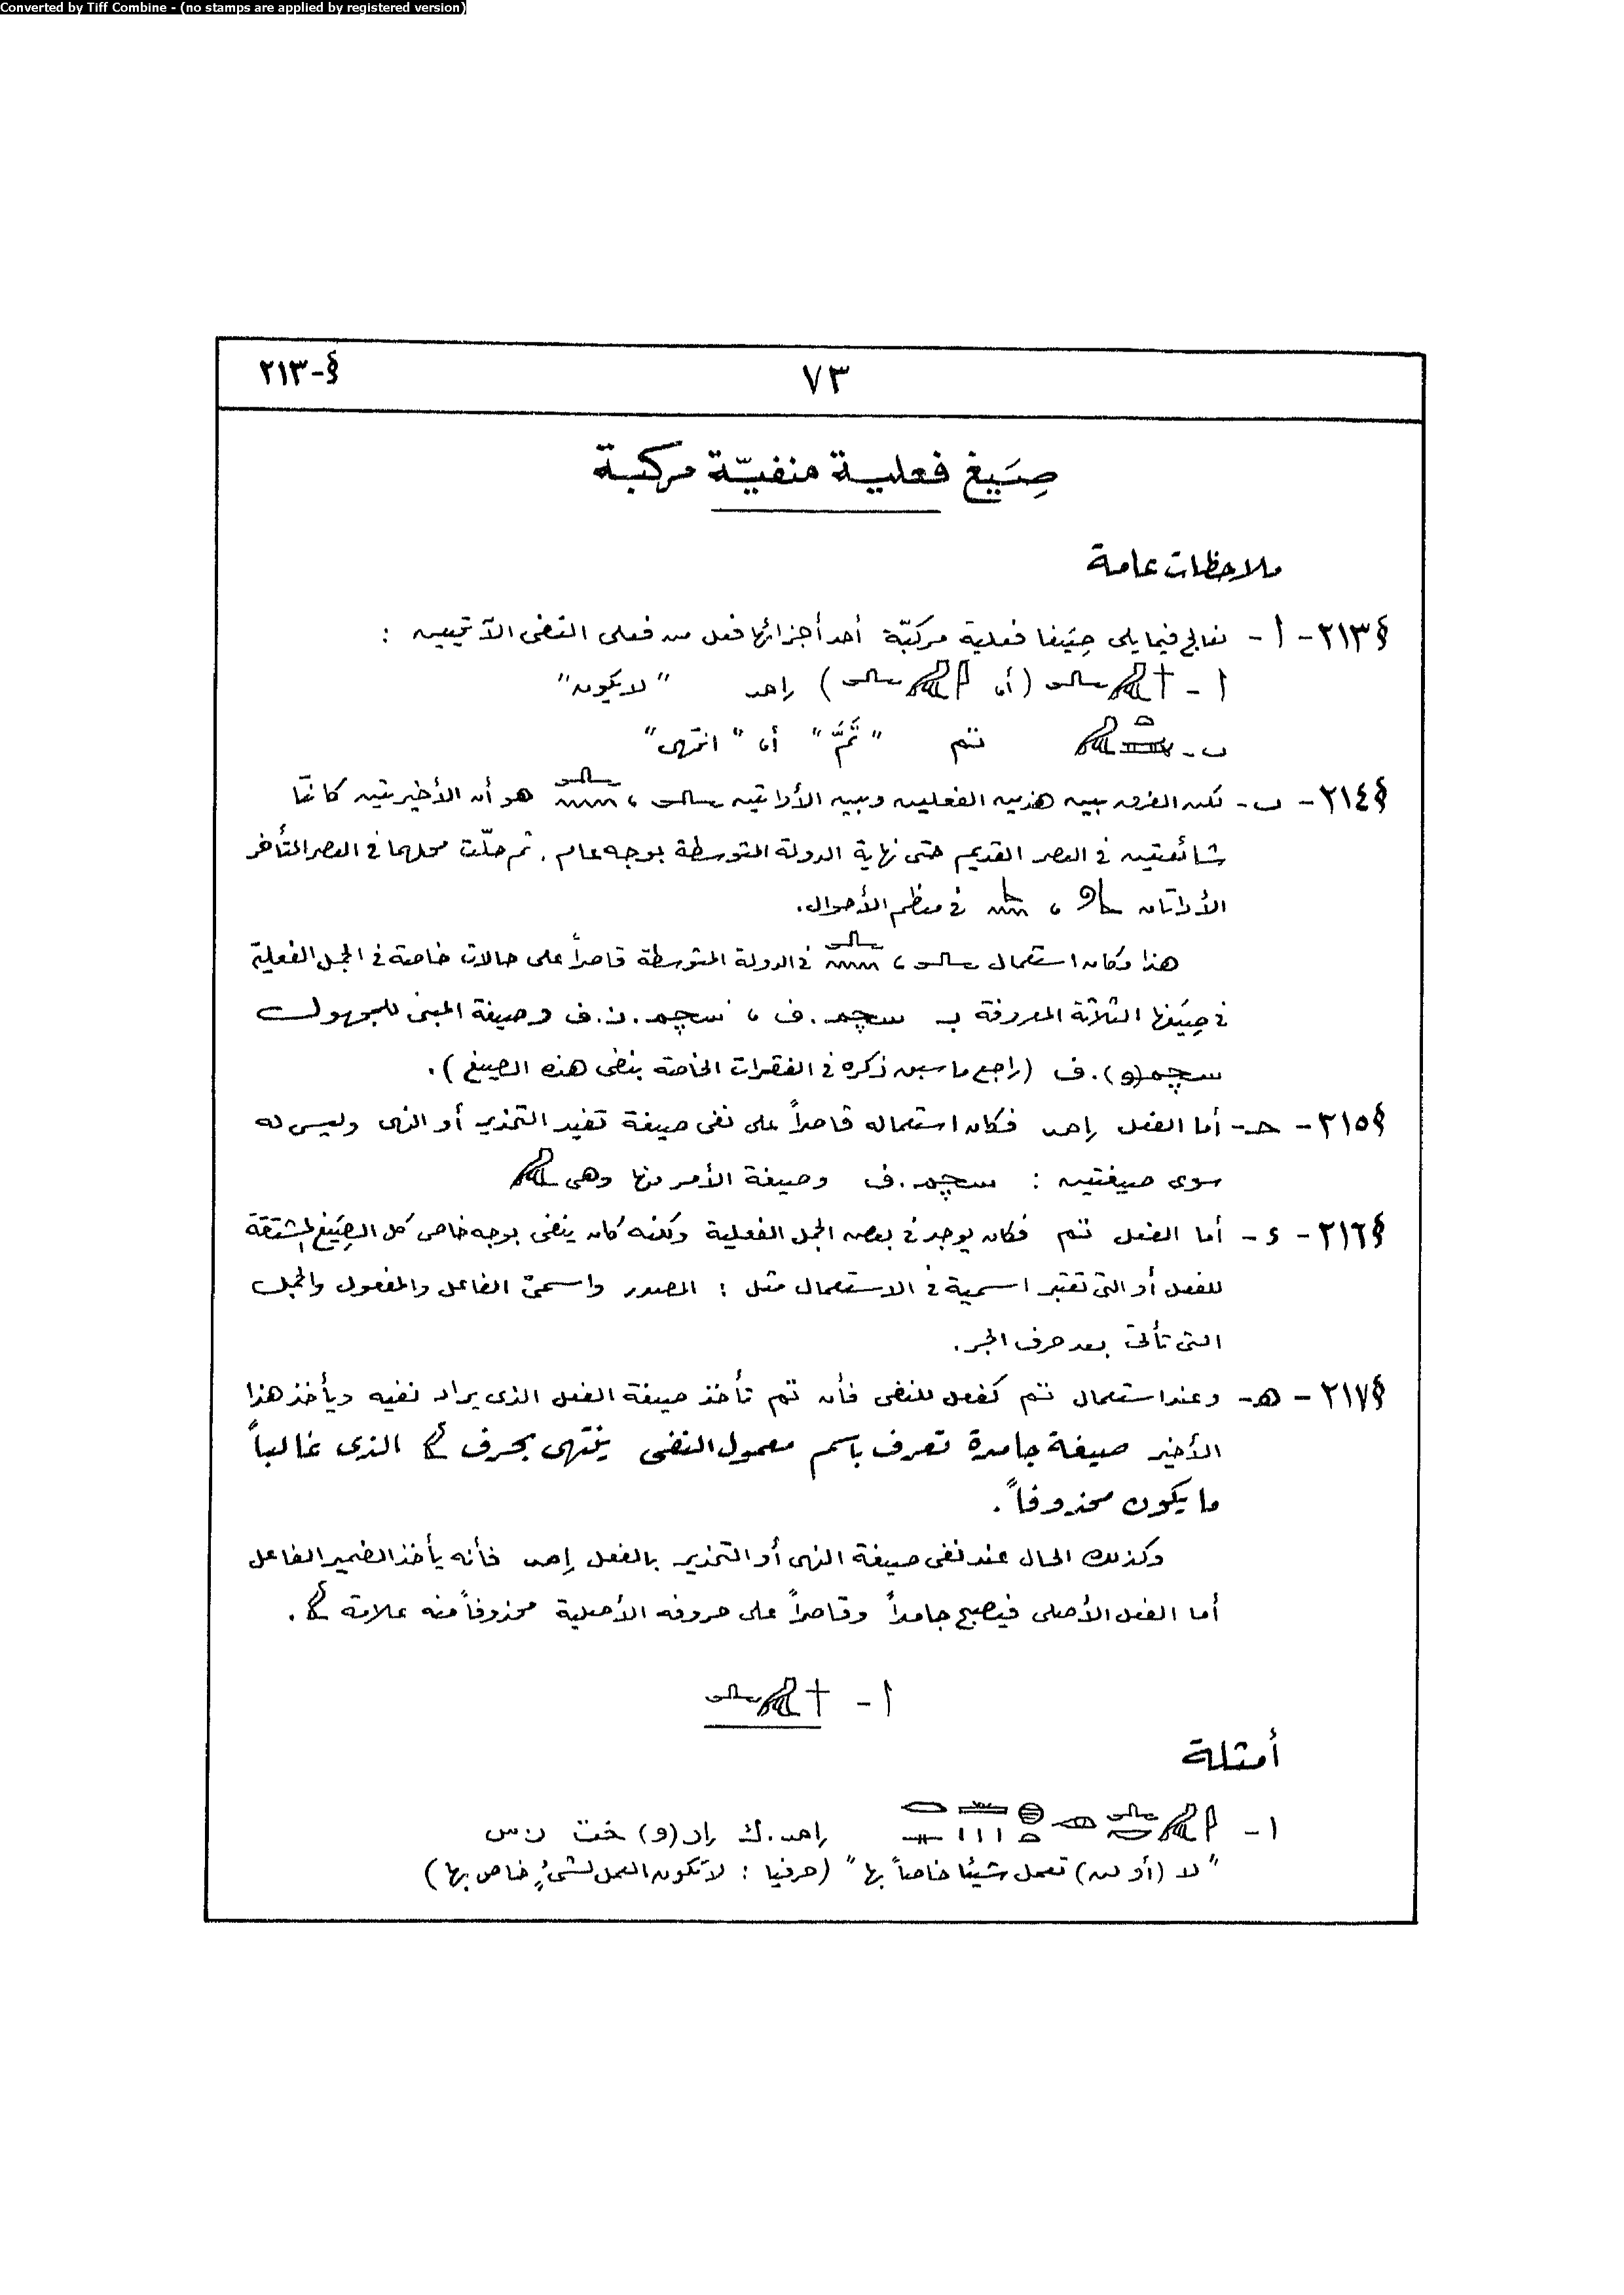 Converted by Tiff Combine - (no stamps are applied by registered version)
§-٢١٣
٧٣
صِيَغ فعلية منفيّة مركبة
ملاحظات عامة
§٢١٣- أ - نعالج فيما يلى صِيَغا فعلية مركبّة أحد أجزائها فعل من فعلى النفى الآتيين :
أ - (أو ) إمد "لا يكون"
ب - تم "تَمَّ" أو "انتهى"
§٢١٤- ب - لكن الفرق بين هذين الفعلين وبين الأداتين ، هو أن الأخيرتين كانتا
شائعتين فى العصر القديم حتى نهاية الدولة المتوسطة بوجه عام . ثم حلّت محلهما فى العصر المتأخر
الأداتان ، فى معظم الأحوال.
هذا وكان استعمال ، فى الدولة المتوسطة قاصراً على حالات خاصة فى الجمل الفعلية
فى صِيَغها الثلاثة المعروفة بـ سچم.ف ، سچم.ن.ف وصيغة المبنى للمجهول
سچم(و).ف (راجع ما سبق ذكره فى الفقرات الخاصة بنفى هذه الصيغ).
§٢١٥- حـ - أما الفعل إمد فكان استعماله قاصراً على نفى صيغة تفيد التحذير أو النهى وليس له
سوى صيغتين : سچم.ف وصيغة الأمر منها وهى
§٢١٦- د - أما الفعل تم فكان يوجد فى بعض الجمل الفعلية ولكنه كان ينفى بوجه خاص كل الصِيَغ المشتقة
للفعل أو التى تعتبر اسمية فى الاستعمال مثل : المصدر واسمىّ الفاعل والمفعول والجمل
التى تأتى بعد حرف الجر.
§٢١٧- هـ - وعند استعمال تم كفعل للنفى فأن تم تأخذ صيغة الفعل الذى يراد نفيه ويأخذ هذا
الأخير صيغة جامدة تعرف باسم معمول النفى ينتهى بحرف الذى غالباً
ما يكون محذوفاً.
وكذلك الحال عند نفى صيغة النهى أو التحذير بالفعل إمد فأنه يأخذ الضمير الفاعل
أما الفعل الأصلى فيصبح جامداً وقاصراً على حروفه الأصلية محذوفاً منه علامة .
أ -
أمثلة
١ - إمد.ك إر(و) خت ن س
"لا (أو لن) تعمل شيئا خاصاً بها" (حرفيا : لا تكون العمل لشئٍ خاص بها)